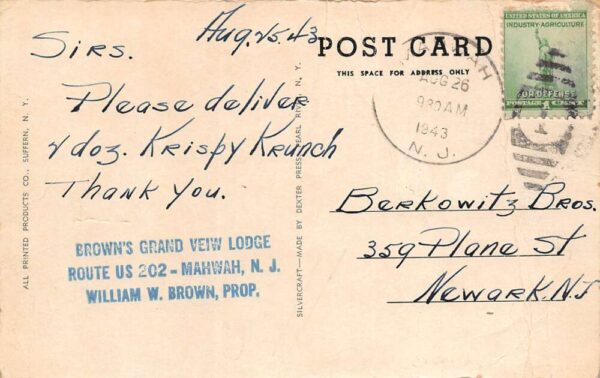 Aug. 25, 43
Sirs.
Please deliver
2 doz. Krispy Krunch
Thank You.
BROWN'S GRAND VEIW LODGE
ROUTE US 202 - MAHWAH, N. J.
WILLIAM W. BROWN, PROP.
ALL PRINTED PRODUCTS CO., SUFFERN, N. Y.
SILVERCRAFT—MADE BY DEXTER PRESS, PEARL RIVER, N. Y.
POST CARD
THIS SPACE FOR ADDRESS ONLY
MAHWAH
AUG 26
9 30 AM
1943
N. J.
UNITED STATES OF AMERICA
INDUSTRY-AGRICULTURE
FOR DEFENSE
POSTAGE 1 CENT
Berkowitz Bros.
359 Plane St
Newark. N.J